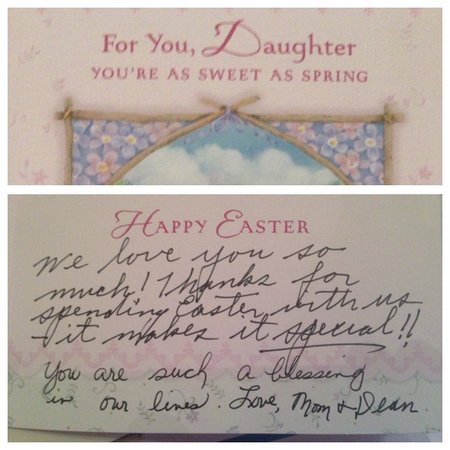 For You, Daughter
YOU'RE AS SWEET AS SPRING
HAPPY EASTER
We love you so
much! Thanks for
spending Easter with us
- it makes it special!!
You are such a blessing
in our lives. Love, Mom & Dean.